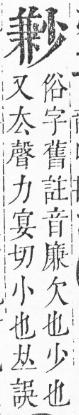 俗字舊註音廉欠也少也
又厺聲力宴切小也丛誤